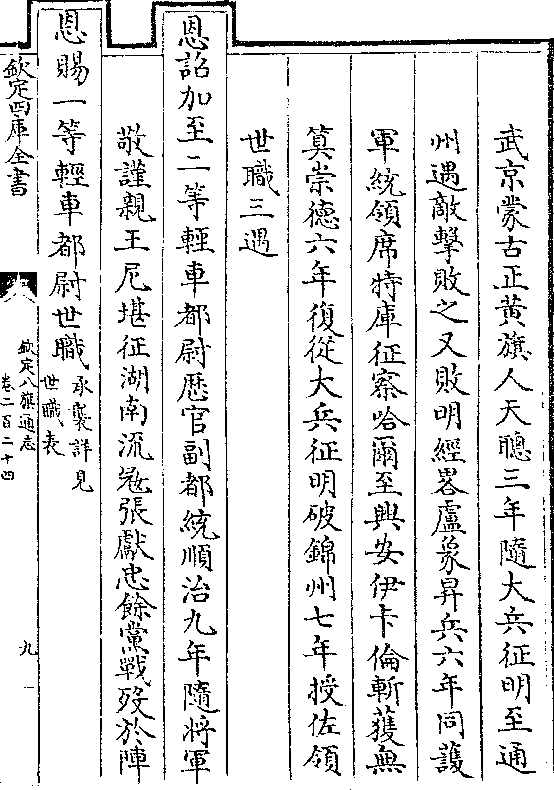 武京蒙古正黄旗人天聰三年隨大兵征明至通
州遇敵擊敗之又敗明經畧盧象昇兵六年同護
軍統領席特庫征察哈爾至興安伊卡倫斬獲無
筭崇德六年復從大兵征明破錦州七年授佐領
世職三遇
恩詔加至二等輕車都尉歴官副都統順治九年隨將軍
敬謹親王尼堪征湖南流冦張獻忠餘黨戰歿於陣
恩賜一等輕車都尉世職承襲詳見
世職表
欽定四庫全書
欽定八旗通志
卷二百二十四
九